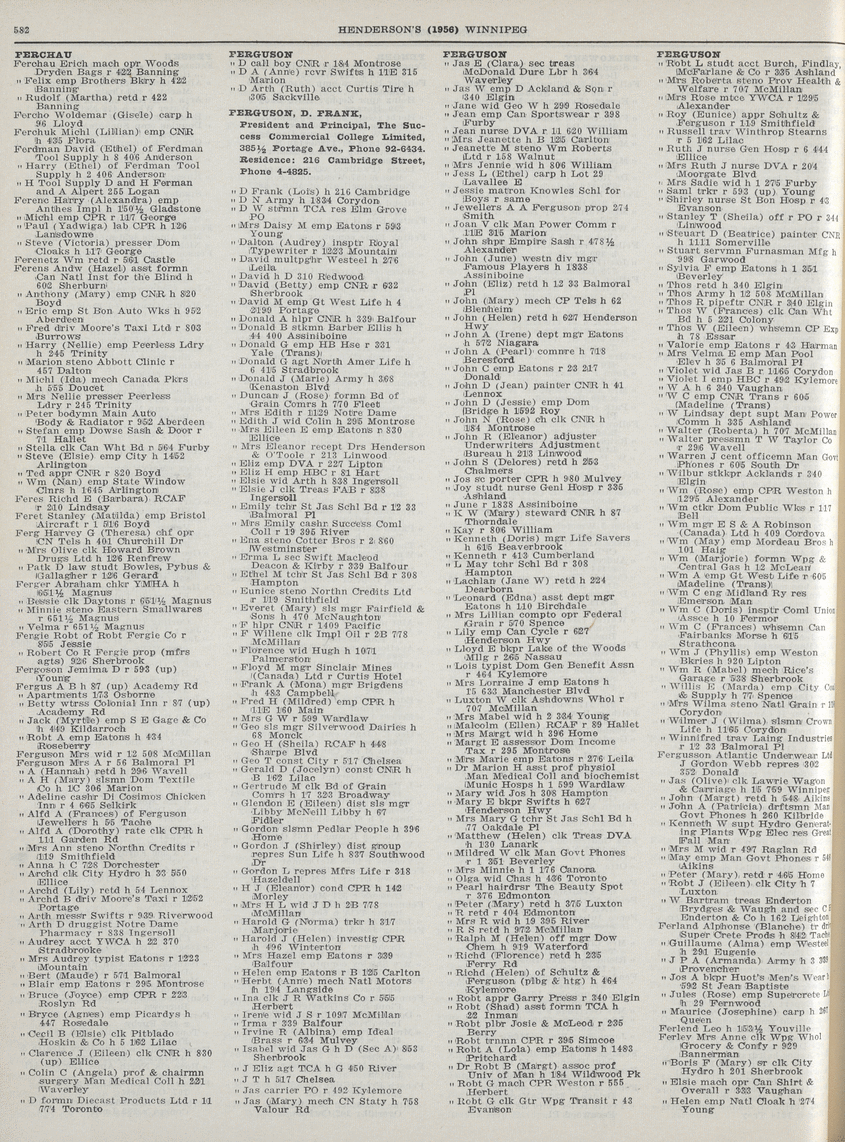 582
HENDERSON'S (1956) WINNIPEG
FERCHAU
Ferchau Erich mach opr Woods
Dryden Bags r 422 Banning
" Felix emp Brothers Bkry h 422
Banning
" Rudolf (Martha) retd r 422
Banning
Fercho Woldemar (Gisele) carp h
96 Lloyd
Ferchuk Michl (Lillian) emp CNR
h 435 Flora
Ferdman David (Ethel) of Ferdman
Tool Supply h 8 406 Anderson
" Harry (Ethel) of Ferdman Tool
Supply h 2 406 Anderson
" H Tool Supply D and H Ferman
and A Alpert 255 Logan
Ferenc Harry (Alexandra) emp
Anthes Impl h 150½ Gladstone
" Michl emp CPR r 117 George
" Paul (Yadwiga) lab CPR h 126
Lansdowne
" Steve (Victoria) presser Dom
Cloaks h 117 George
Ferenetz Wm retd r 561 Castle
Ferens Andw (Hazel) asst formn
Can Natl Inst for the Blind h
602 Sherburn
" Anthony (Mary) emp CNR h 820
Boyd
" Eric emp St Bon Auto Wks h 952
Aberdeen
" Fred driv Moore's Taxi Ltd r 803
Burrows
" Harry (Nellie) emp Peerless Ldry
h 245 Trinity
" Marion steno Abbott Clinic r
457 Dalton
" Michl (Ida) mech Canada Pkrs
h 555 Doucet
" Mrs Nellie presser Peerless
Ldry r 245 Trinity
" Peter bodymn Main Auto
Body & Radiator r 952 Aberdeen
" Stefan emp Dowse Sash & Door r
71 Hallet
" Stella clk Can Wht Bd r 564 Furby
" Steve (Elsie) emp City h 1452
Arlington
" Ted appr CNR r 820 Boyd
" Wm (Nan) emp State Window
Clnrs h 1645 Arlington
Feres Richd E (Barbara) RCAF
r 210 Lindsay
Feret Stanley (Matilda) emp Bristol
Aircraft r 1 516 Boyd
Ferg Harvey G (Theresa) chf opr
CN Tels h 401 Churchill Dr
" Mrs Olive clk Howard Brown
Drugs Ltd h 126 Renfrew
" Patk D law studt Bowles, Pybus &
Gallagher r 126 Gerard
Ferger Abraham chkr YMHA h
651½ Magnus
" Bessie clk Daytons r 651½ Magnus
" Minnie steno Eastern Smallwares
r 651½ Magnus
" Velma r 651½ Magnus
Fergie Robt of Robt Fergie Co r
855 Jessie
" Robert Co R Fergie prop (mfrs
agts) 926 Sherbrook
Fergoson Jemima D r 593 (up)
Young
Fergus A B h 87 (up) Academy Rd
" Apartments 173 Osborne
" Betty wtrss Colonial Inn r 87 (up)
Academy Rd
" Jack (Myrtle) emp S E Gage & Co
h 449 Kildarroch
" Robt A emp Eatons h 434
Roseberry
Ferguson Mrs wid r 12 508 McMillan
Ferguson Mrs A r 56 Balmoral Pl
" A (Hannah) retd h 296 Wavell
" A H (Mary) slsmn Dom Textile
Co h 1C 306 Marion
" Adeline cashr Di Cosimos Chicken
Inn r 4 665 Selkirk
" Alfd A (Frances) of Ferguson
Jewellers h 55 Tache
" Alfd A (Dorothy) rate clk CPR h
111 Garden Rd
" Mrs Ann steno Northn Credits r
119 Smithfield
" Anna h C 728 Dorchester
" Archd clk City Hydro h 33 550
Ellice
" Archd (Lily) retd h 54 Lennox
" Archd B driv Moore's Taxi r 1252
Portage
" Arth messr Swifts r 939 Riverwood
" Arth D druggist Notre Dame
Pharmacy r 838 Ingersoll
" Audrey acct YWCA h 22 370
Stradbrooke
" Mrs Audrey typist Eatons r 1223
Mountain
" Bert (Maude) r 571 Balmoral
" Blair emp Eatons r 295 Montrose
" Bruce (Joyce) emp CPR r 223
Roslyn Rd
" Bryce (Agnes) emp Picardys h
447 Rosedale
" Cecil B (Elsie) clk Pitblado
Hoskin & Co h 5 162 Lilac
" Clarence J (Eileen) clk CNR h 830
(up) Ellice
" Colin C (Angela) prof & chairmn
surgery Man Medical Coll h 221
Waverley
" D formn Diecast Products Ltd r 11
774 Toronto
FERGUSON
" D call boy CNR r 184 Montrose
" D A (Anne) rcvr Swifts h 11E 315
Marion
" D Arth (Ruth) acct Curtis Tire h
305 Sackville
FERGUSON, D. FRANK,
President and Principal, The Suc-
cess Commercial College Limited,
385½ Portage Ave., Phone 92-6434.
Residence: 216 Cambridge Street,
Phone 4-4825.
" D Frank (Lois) h 216 Cambridge
" D N Army h 1834 Corydon
" D W strmn TCA res Elm Grove
PO
" Mrs Daisy M emp Eatons r 593
Young
" Dalton (Audrey) insptr Royal
Typewriter r 1223 Mountain
" David multpghr Westeel h 276
Leila
" David h D 310 Redwood
" David (Betty) emp CNR r 632
Sherbrook
" David M emp Gt West Life h 4
2199 Portage
" Donald A hlpr CNR h 339 Balfour
" Donald B stkmn Barber Ellis h
44 400 Assiniboine
" Donald G emp HB Hse r 331
Yale (Trans)
" Donald G agt North Amer Life h
6 415 Stradbrook
" Donald J (Marie) Army h 368
Kenaston Blvd
" Duncan J (Rose) formn Bd of
Grain Comrs h 770 Fleet
" Mrs Edith r 1129 Notre Dame
" Edith J wid Colin h 295 Montrose
" Mrs Eileen E emp Eatons r 830
Ellice
" Mrs Eleanor recept Drs Henderson
& O'Toole r 213 Linwood
" Eliz emp DVA r 227 Lipton
" Eliz H emp HBC r 81 Hart
" Elsie wid Arth h 838 Ingersoll
" Elsie J clk Treas FAB r 838
Ingersoll
" Emily tchr St Jas Schl Bd r 12 33
Balmoral Pl
" Mrs Emily cashr Success Coml
Coll r 19 395 River
" Ena steno Cotter Bros r 2 860
Westminster
" Erma L sec Swift Macleod
Deacon & Kirby r 339 Balfour
" Ethel M tchr St Jas Schl Bd r 308
Hampton
" Eunice steno Northn Credits Ltd
r 119 Smithfield
" Everet (Mary) sls mgr Fairfield &
Sons h 470 McNaughton
" F hlpr CNR r 1409 Pacific
" F Willene clk Impl Oil r 2B 778
McMillan
" Florence wid Hugh h 1071
Palmerston
" Floyd M mgr Sinclair Mines
(Canada) Ltd r Curtis Hotel
" Frank A (Mona) mgr Brigdens
h 483 Campbell
" Fred H (Mildred) emp CPR h
11E 160 Main
" Mrs G W r 599 Wardlaw
" Geo sls mgr Silverwood Dairies h
68 Monck
" Geo H (Sheila) RCAF h 448
Sharpe Blvd
" Geo T const City r 517 Chelsea
" Gerald D (Jocelyn) const CNR h
B 162 Lilac
" Gertrude M clk Bd of Grain
Comrs h 17 323 Broadway
" Glendon E (Eileen) dist sls mgr
Libby McNeill Libby h 67
Fidler
" Gordon slsmn Pedlar People h 396
Home
" Gordon J (Shirley) dist group
repres Sun Life h 837 Southwood
Dr
" Gordon L repres Mfrs Life h 318
Hazeldell
" H J (Eleanor) cond CPR h 142
Morley
" Mrs H L wid J D h 2B 778
McMillan
" Harold G (Norma) trkr h 317
Marjorie
" Harold J (Helen) investig CPR
h 496 Winterton
" Mrs Hazel emp Eatons r 339
Balfour
" Helen emp Eatons r B 125 Carlton
" Herbt (Anne) mech Natl Motors
h 194 Langside
" Ina clk J R Watkins Co r 555
Herbert
" Irene wid J S r 1097 McMillan
" Irma r 339 Balfour
" Irvine R (Albina) emp Ideal
Brass r 634 Mulvey
" Isabel wid Jas G h D (Sec A) 853
Sherbrook
" J Eliz agt TCA h G 450 River
" J T h 517 Chelsea
" Jas carrier PO r 492 Kylemore
" Jas (Mary) mech CN Staty h 758
Valour Rd
FERGUSON
" Jas E (Clara) sec treas
McDonald Dure Lbr h 364
Waverley
" Jas W emp D Ackland & Son r
340 Elgin
" Jane wid Geo W h 299 Rosedale
" Jean emp Can Sportswear r 398
Furby
" Jean nurse DVA r 11 620 William
" Mrs Jeanette h B 125 Carlton
" Jeanette M steno Wm Roberts
Ltd r 158 Walnut
" Mrs Jennie wid h 806 William
" Jess L (Ethel) carp h Lot 29
Lavallee E
" Jessie matron Knowles Schl for
Boys r same
" Jewellers A A Ferguson prop 274
Smith
" Joan V clk Man Power Comm r
11E 315 Marion
" John shpr Empire Sash r 478½
Alexander
" John (June) westn div mgr
Famous Players h 1838
Assiniboine
" John (Eliz) retd h 12 33 Balmoral
Pl
" John (Mary) mech CP Tels h 62
Blenheim
" John (Helen) retd h 627 Henderson
Hwy
" John A (Irene) dept mgr Eatons
h 572 Niagara
" John A (Pearl) comnre h 718
Beresford
" John C emp Eatons r 23 217
Donald
" John D (Jean) painter CNR h 41
Lennox
" John D (Jessie) emp Dom
Bridge h 1592 Roy
" John N (Rose) ch clk CNR h
184 Montrose
" John R (Eleanor) adjuster
Underwriters Adjustment
Bureau h 213 Linwood
" John S (Delores) retd h 253
Chalmers
" Jos sc porter CPR h 980 Mulvey
" Joy studt nurse Genl Hosp r 335
Ashland
" June r 1838 Assiniboine
" K W (Mary) steward CNR h 87
Thorndale
" Kay r 806 William
" Kenneth (Doris) mgr Life Savers
h 615 Beaverbrook
" Kenneth r 413 Cumberland
" L May tchr Schl Bd r 308
Hampton
" Lachlan (Jane W) retd h 224
Dearborn
" Leonard (Edna) asst dept mgr
Eatons h 110 Birchdale
" Mrs Lillian compto opr Federal
Grain r 570 Spence
" Lily emp Can Cycle r 627
Henderson Hwy
" Lloyd E bkpr Lake of the Woods
Mllg r 265 Nassau
" Lois typist Dom Gen Benefit Assn
r 464 Kylemore
" Mrs Lorraine J emp Eatons h
15 633 Manchester Blvd
" Luxton W clk Ashdowns Whol r
707 McMillan
" Mrs Mabel wid h 2 384 Young
" Malcolm (Ellen) RCAF r 89 Hallet
" Mrs Margt wid h 396 Home
" Margt E assessor Dom Income
Tax r 295 Montrose
" Mrs Marie emp Eatons r 276 Leila
" Dr Marion H asst prof physiol
Man Medical Coll and biochemist
Munic Hosps h 1 599 Wardlaw
" Mary wid Jos h 308 Hampton
" Mary E bkpr Swifts h 627
Henderson Hwy
" Mrs Mary G tchr St Jas Schl Bd h
77 Oakdale Pl
" Matthew (Helen) clk Treas DVA
h 130 Lanark
" Mildred W clk Man Govt Phones
r 1 351 Beverley
" Mrs Minnie h 1 176 Canora
" Olga wid Chas h 436 Toronto
" Pearl hairdrsr The Beauty Spot
r 376 Edmonton
" Peter (Mary) retd h 375 Luxton
" R retd r 404 Edmonton
" Mrs R wid h 19 395 River
" R S retd h 972 McMillan
" Ralph M (Helen) off mgr Dow
Chem h 919 Waterford
" Richd (Florence) retd h 235
Ferry Rd
" Richd (Helen) of Schultz &
Ferguson (plbg & htg) h 464
Kylemore
" Robt appr Garry Press r 340 Elgin
" Robt (Shad) asst formn TCA h
22 Inman
" Robt plbr Josie & McLeod r 235
Berry
" Robt trnmn CPR r 395 Simcoe
" Robt A (Lola) emp Eatons h 1483
Pritchard
" Dr Robt B (Margt) assoc prof
Univ of Man h 184 Wildwood Pk
" Robt G mach CPR Weston r 555
Herbert
" Robt G clk Gtr Wpg Transit r 43
Evanson
FERGUSON
" Robt L studt acct Burch, Findlay,
McFarlane & Co r 335 Ashland
" Mrs Roberta steno Prov Health &
Welfare r 707 McMillan
" Mrs Rose mtce YWCA r 1295
Alexander
" Roy (Eunice) appr Schultz &
Ferguson r 119 Smithfield
" Russell trav Winthrop Stearns
r 5 162 Lilac
" Ruth J nurse Gen Hosp r 6 444
Ellice
" Mrs Ruth J nurse DVA r 204
Moorgate Blvd
" Mrs Sadie wid h 1 275 Furby
" Saml trkr r 593 (up) Young
" Shirley nurse St Bon Hosp r 43
Evanson
" Stanley T (Sheila) off r PO r 344
Linwood
" Steuart D (Beatrice) painter CNR
h 1111 Somerville
" Stuart servmn Furnasman Mfg h
998 Garwood
" Sylvia F emp Eatons h 1 351
Beverley
" Thos retd h 340 Elgin
" Thos Army h 12 508 McMillan
" Thos R pipeftr CNR r 340 Elgin
" Thos W (Frances) clk Can Wht
Bd h 5 221 Colony
" Thos W (Eileen) whsemn CP Exp
h 78 Essar
" Valorie emp Eatons r 43 Harman
" Mrs Velma E emp Man Pool
Elev h 35 6 Balmoral Pl
" Violet wid Jas B r 1165 Corydon
" Violet I emp HBC r 492 Kylemore
" W A h 6 340 Vaughan
" W C emp CNR Trans r 605
Madeline (Trans)
" W Lindsay dept supt Man Power
Comm h 335 Ashland
" Walter (Roberta) h 707 McMillan
" Walter pressmn T W Taylor Co
r 296 Wavell
" Warren J cent officemn Man Govt
Phones r 605 South Dr
" Wilbur stkkpr Acklands r 340
Elgin
" Wm (Rose) emp CPR Weston h
1295 Alexander
" Wm ctkr Dom Public Wks r 117
Bell
" Wm mgr E S & A Robinson
(Canada) Ltd h 409 Cordova
" Wm (May) emp Mordeau Bros h
101 Haig
" Wm (Marjorie) formn Wpg &
Central Gas h 12 McLean
" Wm A emp Gt West Life r 605
Madeline (Trans)
" Wm C eng Midland Ry res
Emerson Man
" Wm C (Doris) insptr Coml Union
Assce h 10 Fermor
" Wm C (Frances) whsemn Can
Fairbanks Morse h 615
Strathcona
" Wm J (Phyllis) emp Weston
Bkries h 920 Lipton
" Wm R (Mabel) mech Rice's
Garage r 538 Sherbrook
" Willis E (Marda) emp City Coal
& Supply h 77 Spence
" Mrs Wilma steno Natl Grain r 19
Corydon
" Wilmer J (Wilma) slsmn Crown
Life h 1165 Corydon
" Winnifred trav Laing Industries
r 12 33 Balmoral Pl
Fergusson Atlantic Underwear Ltd
J Gordon Webb repres 302
352 Donald
" Jas (Olive) clk Lawrie Wagon
& Carriage h 15 759 Winnipeg
" John (Margt) retd h 548 Aikins
" John A (Patricia) drftsmn Man
Govt Phones h 260 Kilbride
" Kenneth W supt Hydro Generat-
ing Plants Wpg Elec res Great
Fall Man
" Mrs M wid r 497 Raglan Rd
" May emp Man Govt Phones r 548
Aikins
" Peter (Mary) retd r 465 Home
" Robt J (Eileen) clk City h 7
Luxton
" W Bartram treas Enderton
Brydges & Waugh and sec C H
Enderton & Co h 162 Leighton
Ferland Alphonse (Blanche) tr driv
Super Crete Prods h 842 Tache
" Guillaume (Alma) emp Westeel
h 291 Eugenie
" J P A (Armanda) Army h 3 339
Provencher
" Jos A bkpr Huot's Men's Wear h
592 St Jean Baptiste
" Jules (Rose) emp Supercrete Ltd
h 29 Fernwood
" Maurice (Josephine) carp h 267
Queen
Ferlend Leo h 153½ Youville
Ferley Mrs Anne clk Wpg Whol
Grocery & Confy r 929
Bannerman
" Boris F (Mary) sr clk City
Hydro h 201 Sherbrook
" Elsie mach opr Can Shirt &
Overall r 333 Vaughan
" Helen emp Natl Cloak h 274
Young